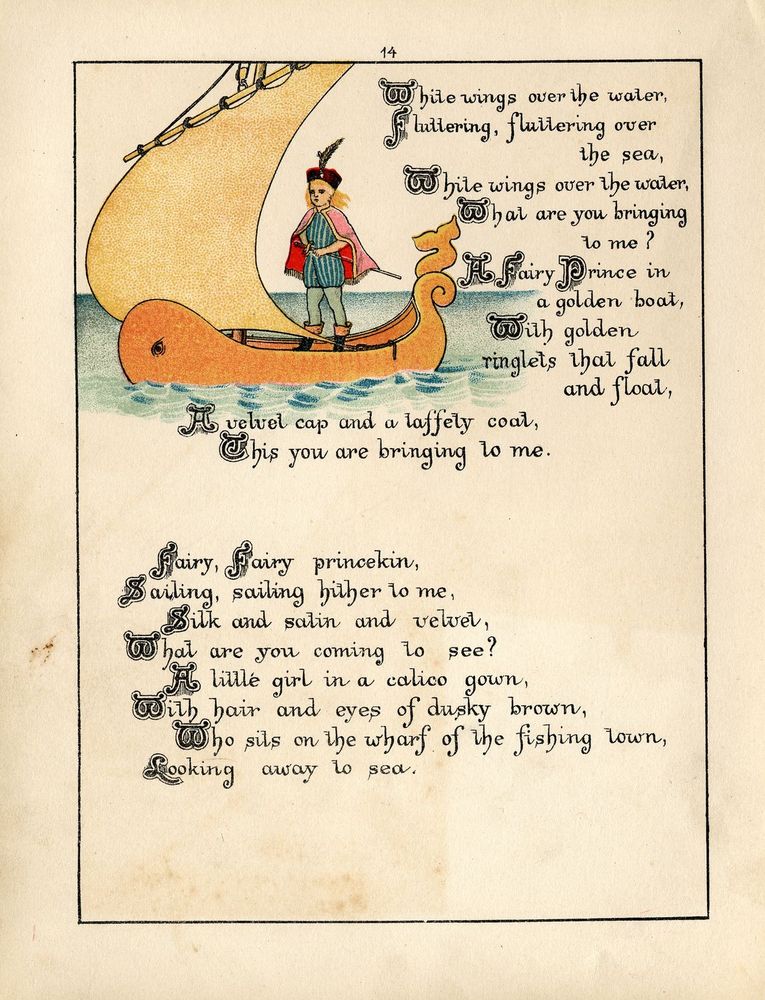 14
White wings over the water,
Fluttering, fluttering over
the sea,
White wings over the water,
What are you bringing
to me?
A Fairy Prince in
a golden boat,
With golden
ringlets that fall
and float,
A velvet cap and a taffety coat,
This you are bringing to me.
Fairy, Fairy princekin,
Sailing, sailing hither to me,
Silk and satin and velvet,
What are you coming to see?
A little girl in a calico gown,
With hair and eyes of dusky brown,
Who sits on the wharf of the fishing town,
Looking away to sea.